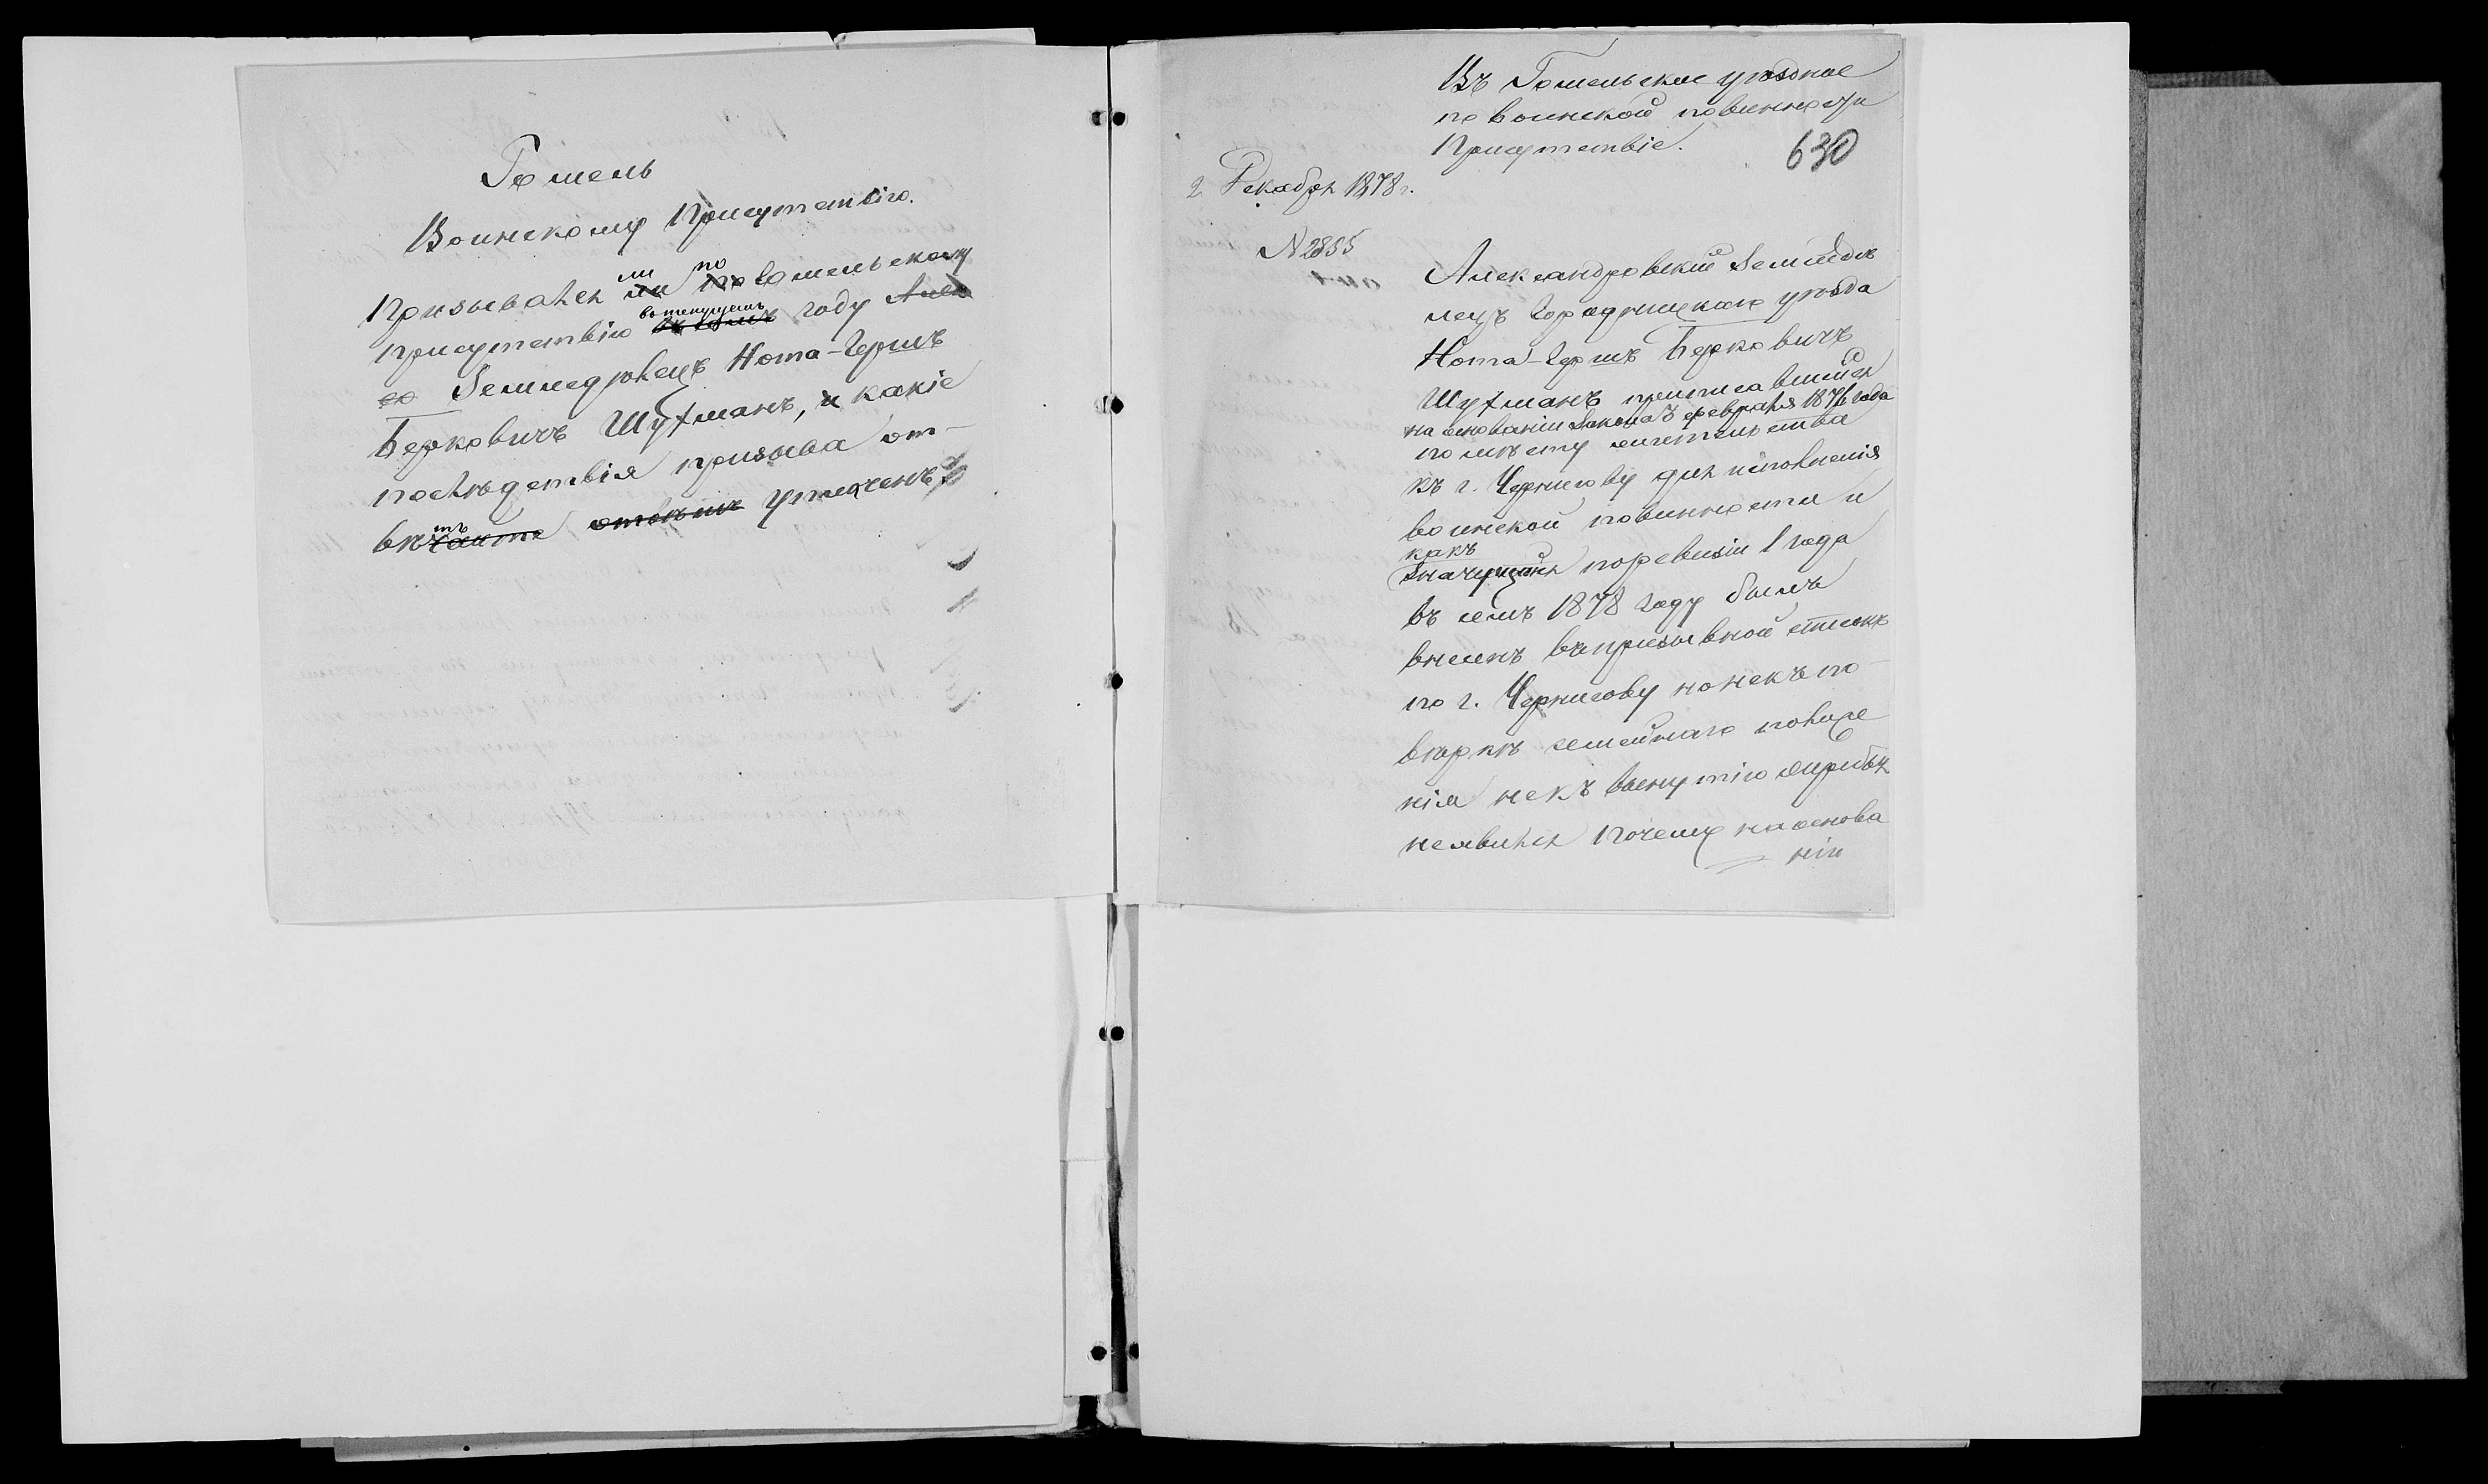 Гомель
Воинскому Присутствію.
Призывался ли по Гомельскому
присутствію въ текущемъ году
Земледѣлецъ Нота-Гершъ
Берковичъ Шухманъ, и какіе
послѣдствія призыва от-
вѣтъ уплоченъ
Въ Гомельское уѣздное
по воинской повинности
Присутствіе.
630
2 Декабря 1878 г.
N 2855
Александровскій Земледѣ
лецъ Городницкаго уѣзда
Нота-Гершъ Берковичъ
Шухманъ приписавшійся
на основаніи Закона 3 февраля 1876 года
по мѣсту жительства
къ г. Чернигову для исполненія
воинской повинности и
какъ
значущійся по ревизіи 1 года
въ семъ 1878 году былъ
внесенъ въ призывной списокъ
по г. Чернигову но не къ по-
вѣркѣ семейнаго положе
нія не къ вынутію жеребья
не явился почему на основа
ніи